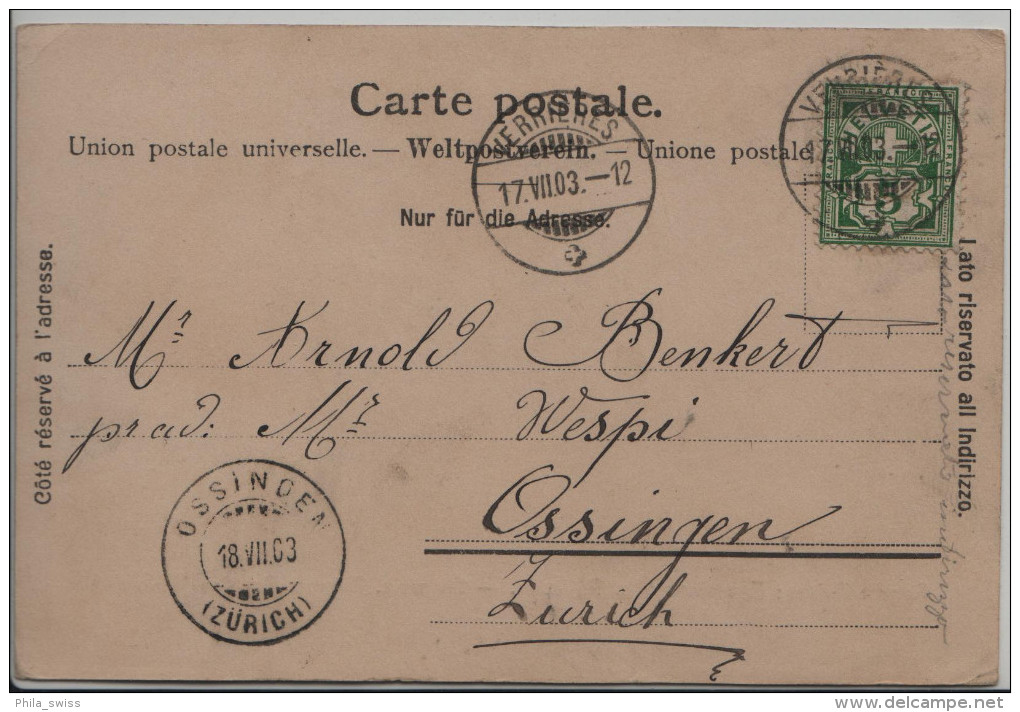 Carte postale.
Union postale universelle. — Weltpostverein. — Unione postale
Nur für die Adresse.
VERRIÈRES
17.VII.03.—12
VERRIÈRES
VII.03.—
HELVETIA
FRANCO
5
Côté réservé à l'adresse.
Lato riservato all Indirizzo.
Mr Arnold Benkert
prad: Mr Wespi
Ossingen
Zurich
OSSINGEN
18.VII.03
(ZÜRICH)
Phila_swiss
delcampe.net